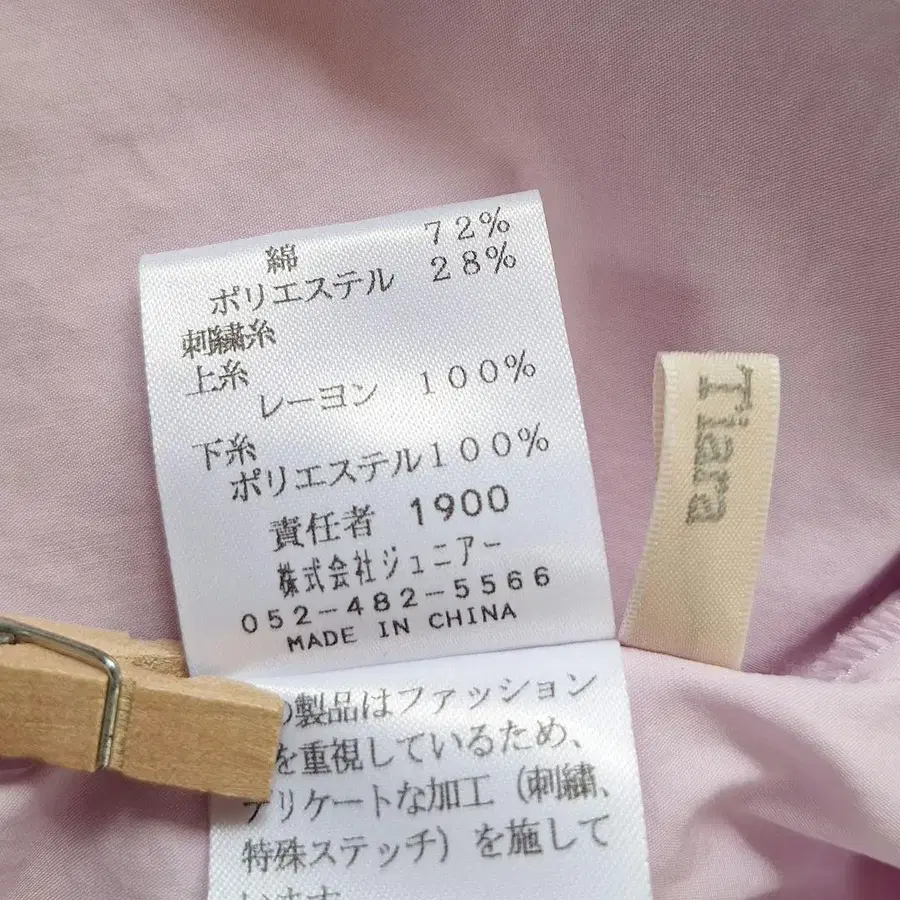 綿 72%
ポリエステル 28%
刺繍糸
上糸
レーヨン 100%
下糸
ポリエステル100%
責任者 1900
株式会社ジュニアー
052-482-5566
MADE IN CHINA
製品はファッション
を重視しているため、
デリケートな加工(刺繍、
特殊ステッチ)を施して
います
Tiara